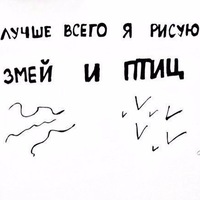 ЛУЧШЕ ВСЕГО Я РИСУЮ
ЗМЕЙ И ПТИЦ